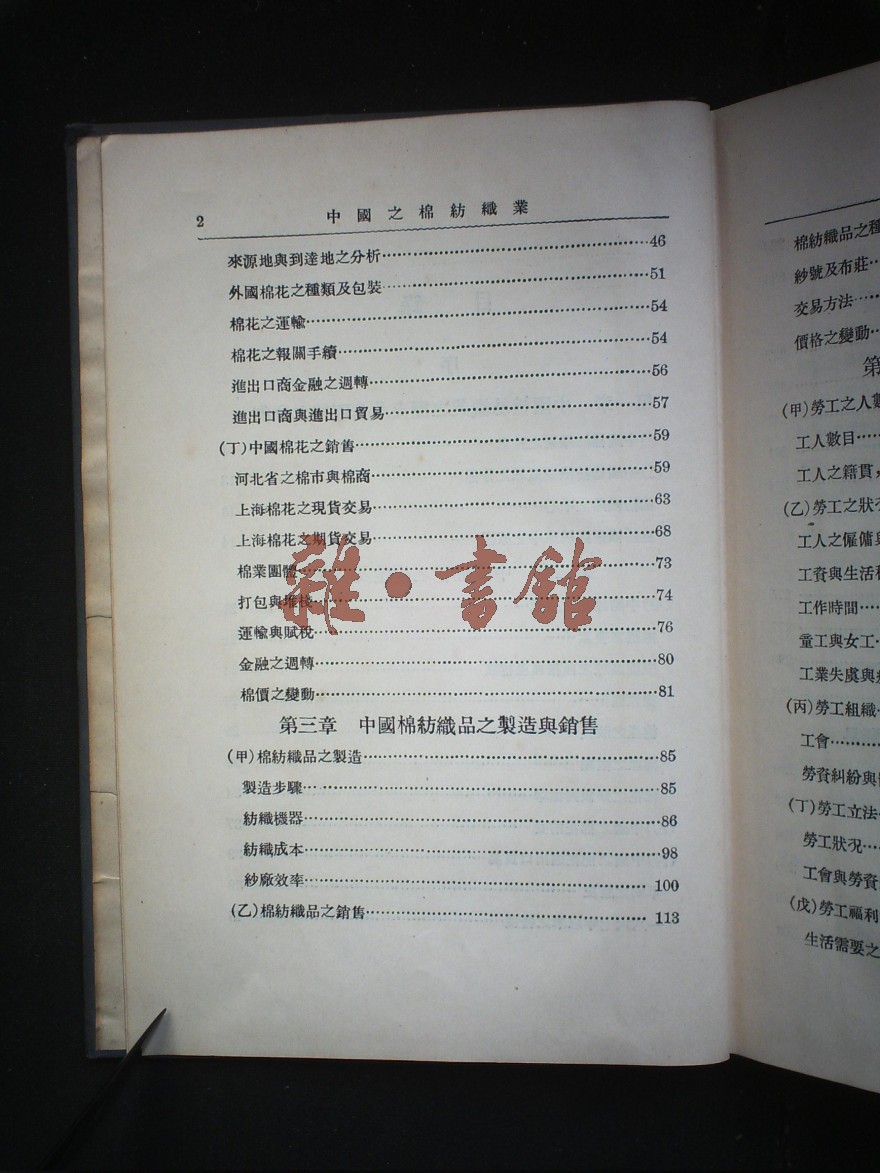 2 中國之棉紡織業
來源地與到達地之分析……46
外國棉花之種類及包裝……51
棉花之運輸……54
棉花之報關手續……54
進出口商金融之週轉……56
進出口商與進出口貿易……57
(丁)中國棉花之銷售……59
河北省之棉市與棉商……59
上海棉花之現貨交易……63
上海棉花之期貨交易……68
棉業團體……73
打包與堆棧……74
運輸與賦稅……76
金融之週轉……80
棉價之變動……81
第三章 中國棉紡織品之製造與銷售
(甲)棉紡織品之製造……85
製造步驟……85
紡織機器……86
紡織成本……98
紗廠效率……100
(乙)棉紡織品之銷售……113
雜·書館
棉紡織品之種
紗號及布莊……
交易方法……
價格之變動……
第
(甲)勞工之人數
工人數目……
工人之籍貫,
(乙)勞工之狀
工人之僱傭與
工資與生活
工作時間……
童工與女工
工業失虞與
(丙)勞工組織
工會……
勞資糾紛與
(丁)勞工立法
勞工狀況……
工會與勞資
(戊)勞工福利
生活需要之